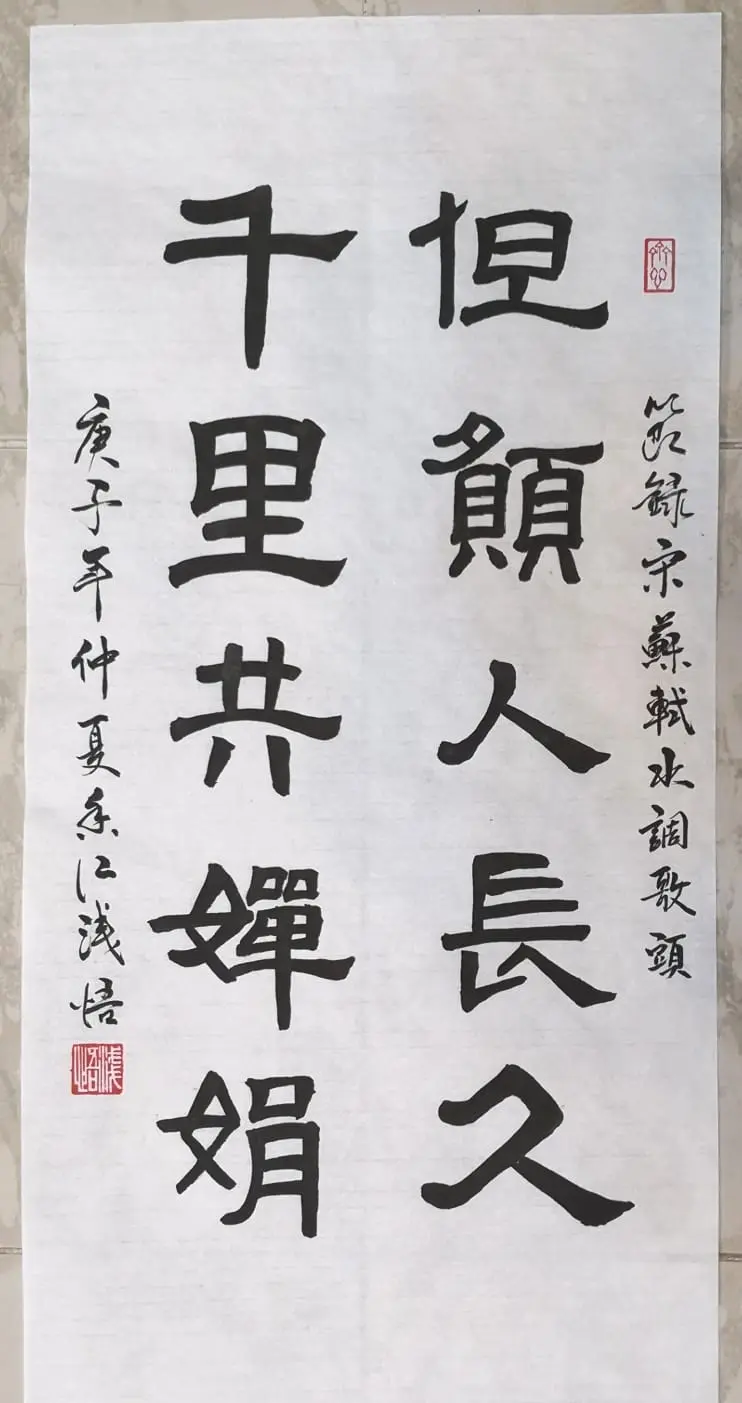 節録宋蘇軾水調歌頭
但願人長久
千里共嬋娟
庚子年仲夏香江浅悟
浅悟